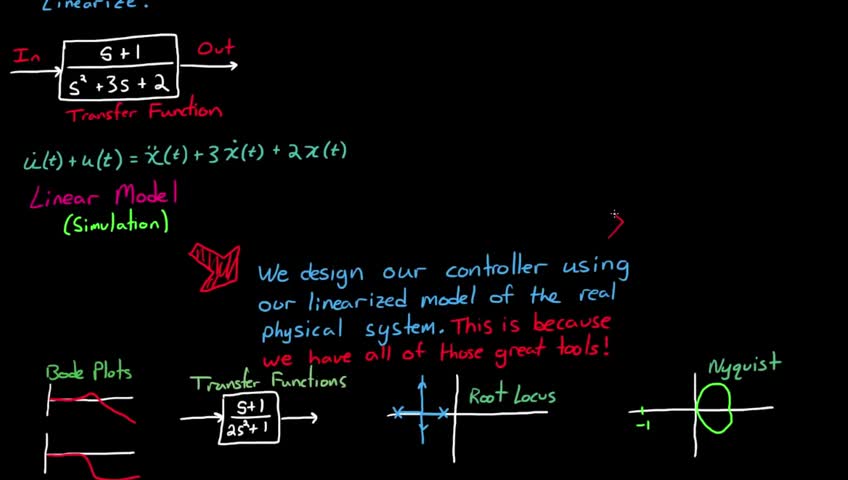 Linearize!
In
Out
s+1
s²+3s+2
Transfer Function
u̇(t)+u(t) = ẍ(t)+3ẋ(t)+2x(t)
Linear Model
(Simulation)
We design our controller using
our linearized model of the real
physical system. This is because
we have all of those great tools!
Bode Plots
Transfer Functions
s+1
2s²+1
Root Locus
Nyquist
-1